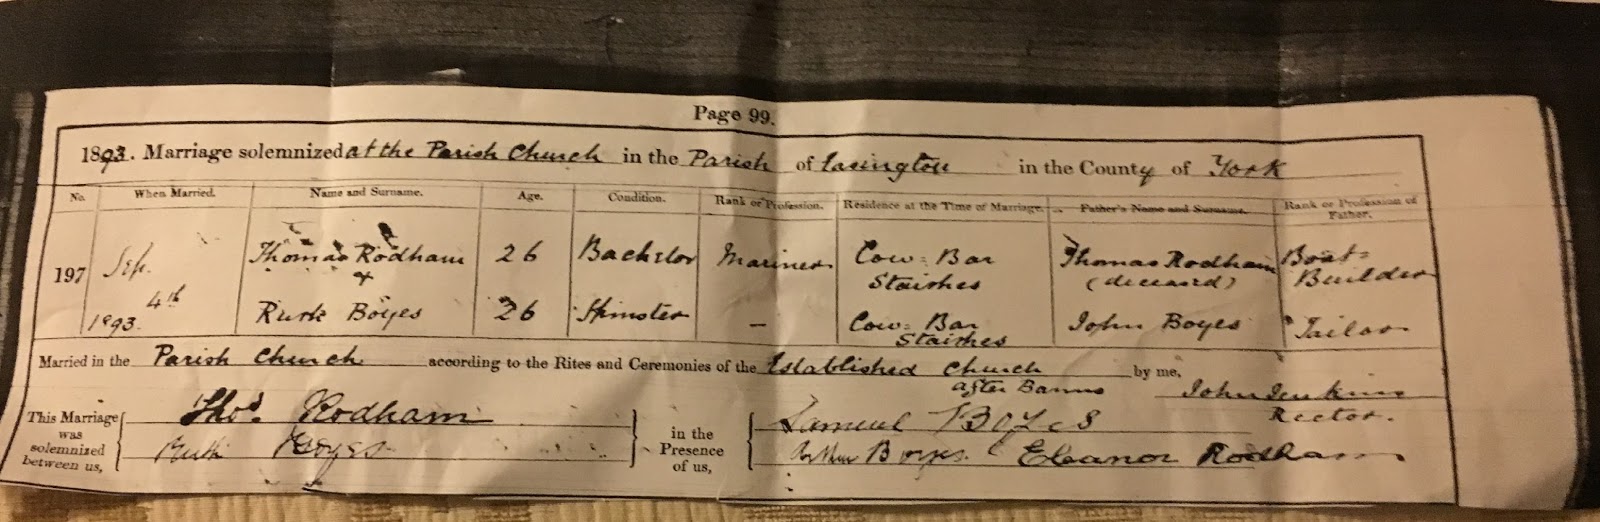 Page 99.
1893. Marriage solemnized at the Parish Church in the Parish of Easington in the County of York
No. When Married. Name and Surname. Age. Condition. Rank or Profession. Residence at the Time of Marriage. Father's Name and Surname. Rank or Profession of Father.
197 Sep. 4th 1893. Thomas Rodham 26 Bachelor Mariner Cow-Bar Staithes Thomas Rodham (deceased) Boat-Builder
&
Ruth Boyes 26 Spinster — Cow-Bar Staithes John Boyes Tailor
Married in the Parish Church according to the Rites and Ceremonies of the Established Church after Banns by me,
John Jenkins
Rector.
This Marriage was solemnized between us,
Thos. Rodham
Ruth Boyes
in the Presence of us,
Samuel Boyes
Boyes. Eleanor Rodham